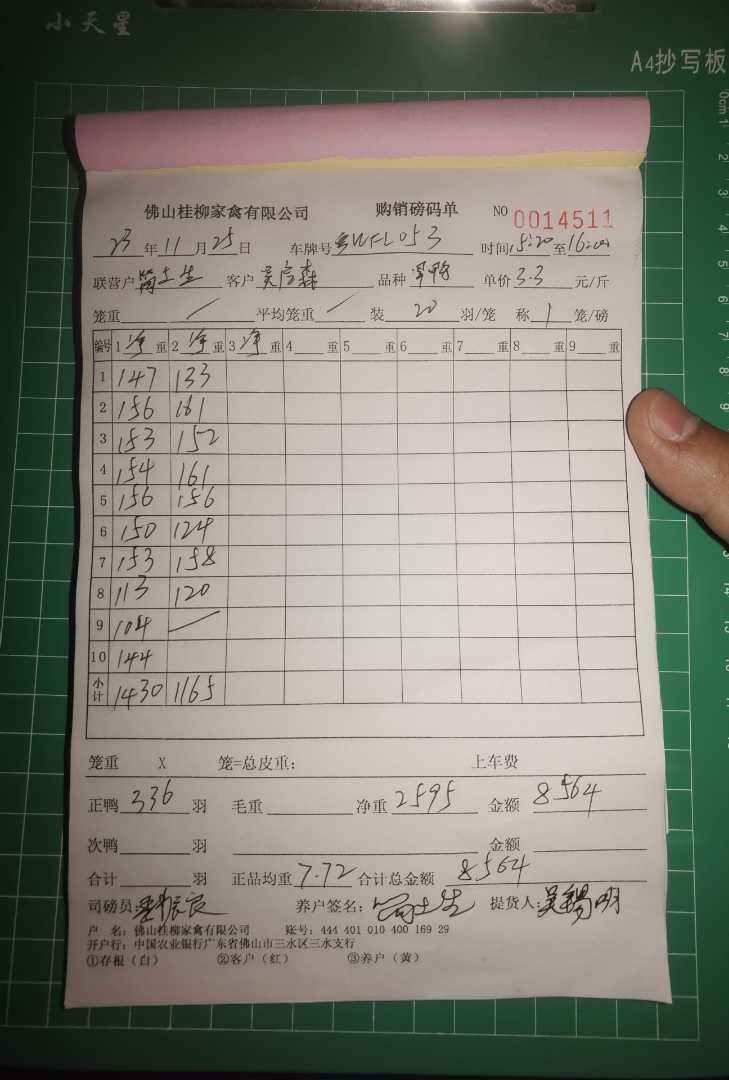 小天星
A4抄写板
佛山桂柳家禽有限公司 购销磅码单 NO 0014511
23年11月25日 车牌号粤WFL053 时间15:20至16:00
联营户 土生 客户 吴 森 品种 单价3.3元/斤
笼重 / 平均笼重 / 装20羽/笼 称1笼/磅
编号 1净重 2净重 3净重 4重 5重 6重 7重 8重 9重
1 147 133
2 156 161
3 153 152
4 154 161
5 156 156
6 150 124
7 153 158
8 113 120
9 104 /
10 144
小计 1430 1165
笼重 X 笼=总皮重: 上车费
正鸭336羽 毛重 净重2595 金额8564
次鸭 羽 金额
合计 羽 正品均重7.72 合计总金额8564
司磅员: 养户签名: 土生 提货人:吴锡明
户 名: 佛山桂柳家禽有限公司 账号: 444 401 010 400 169 29
开户行: 中国农业银行广东省佛山市三水区三水支行
①存根(白) ②客户(红) ③养户(黄)
0cm 1
2
3
4
5
6
7
8
9